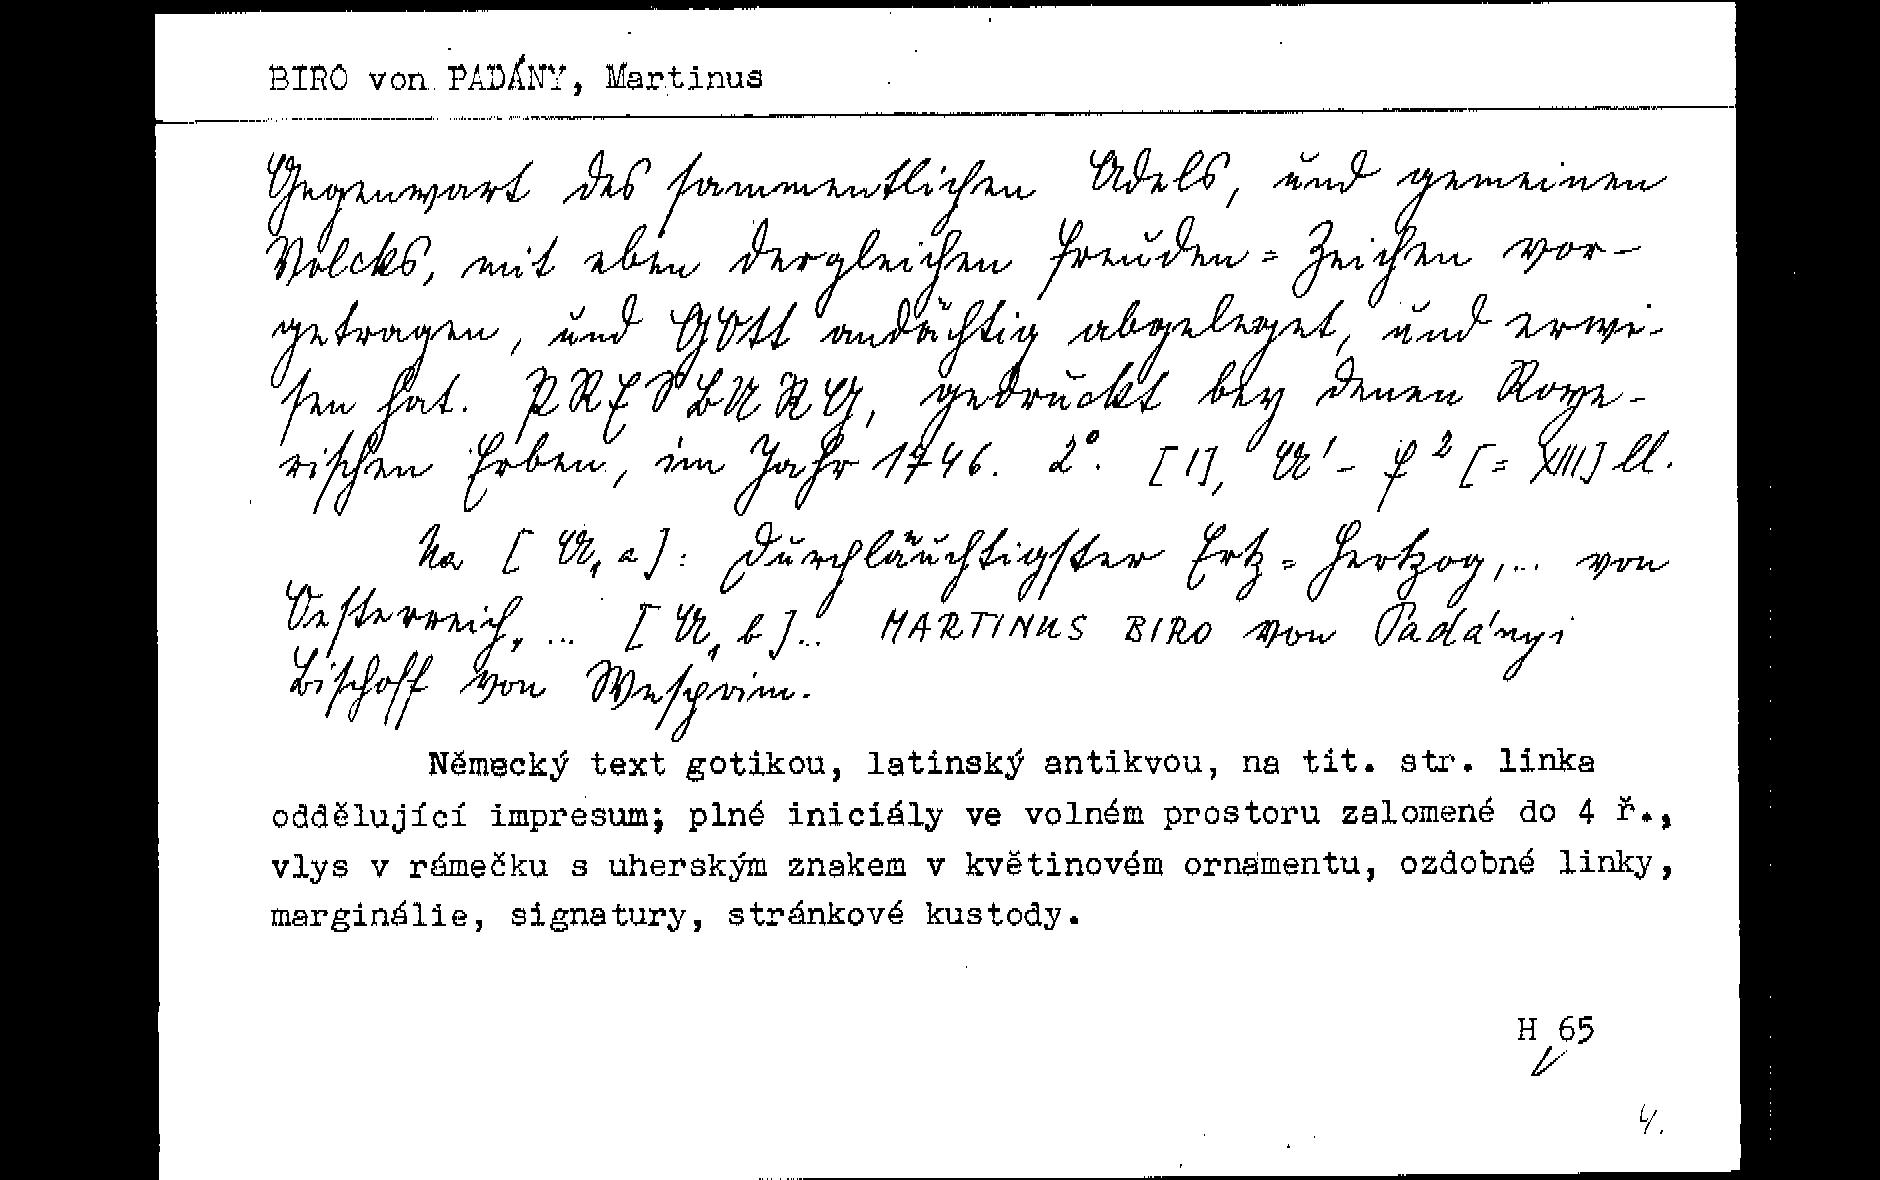 BIRO von PADÁNY, Martinus
Gegenwart des sammentlichen Adels, und gemeinen
Volcks, mit eben dergleichen Freuden = Zeichen vor-
getragen, und GOtt andächtig abgeleget, und erwi-
sen hat. PRESBURG, gedruckt bey denen Roye-
rischen Erben, im Jahr 1746. 2°. [1], A1 - F2 [= XIII] ll.
Na [A1a]: Durchläuchtigster Ertz = Hertzog,... von
Oesterreich, ... [A1b]... MARTINUS BIRO von Padányi
Bischoff von Wesprim.
Německý text gotikou, latinský antikvou, na tit. str. linka
oddělující impresum; plné iniciály ve volném prostoru zalomené do 4 ř.,
vlys v rámečku s uherským znakem v květinovém ornamentu, ozdobné linky,
marginálie, signatury, stránkové kustody.
H 65
4.